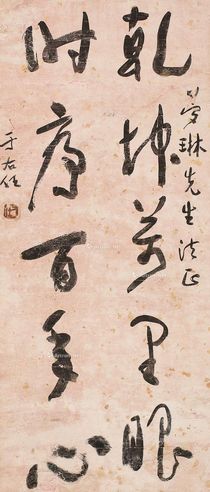 琳先生法正
乾坤萬里眼
時序百年心
于右任